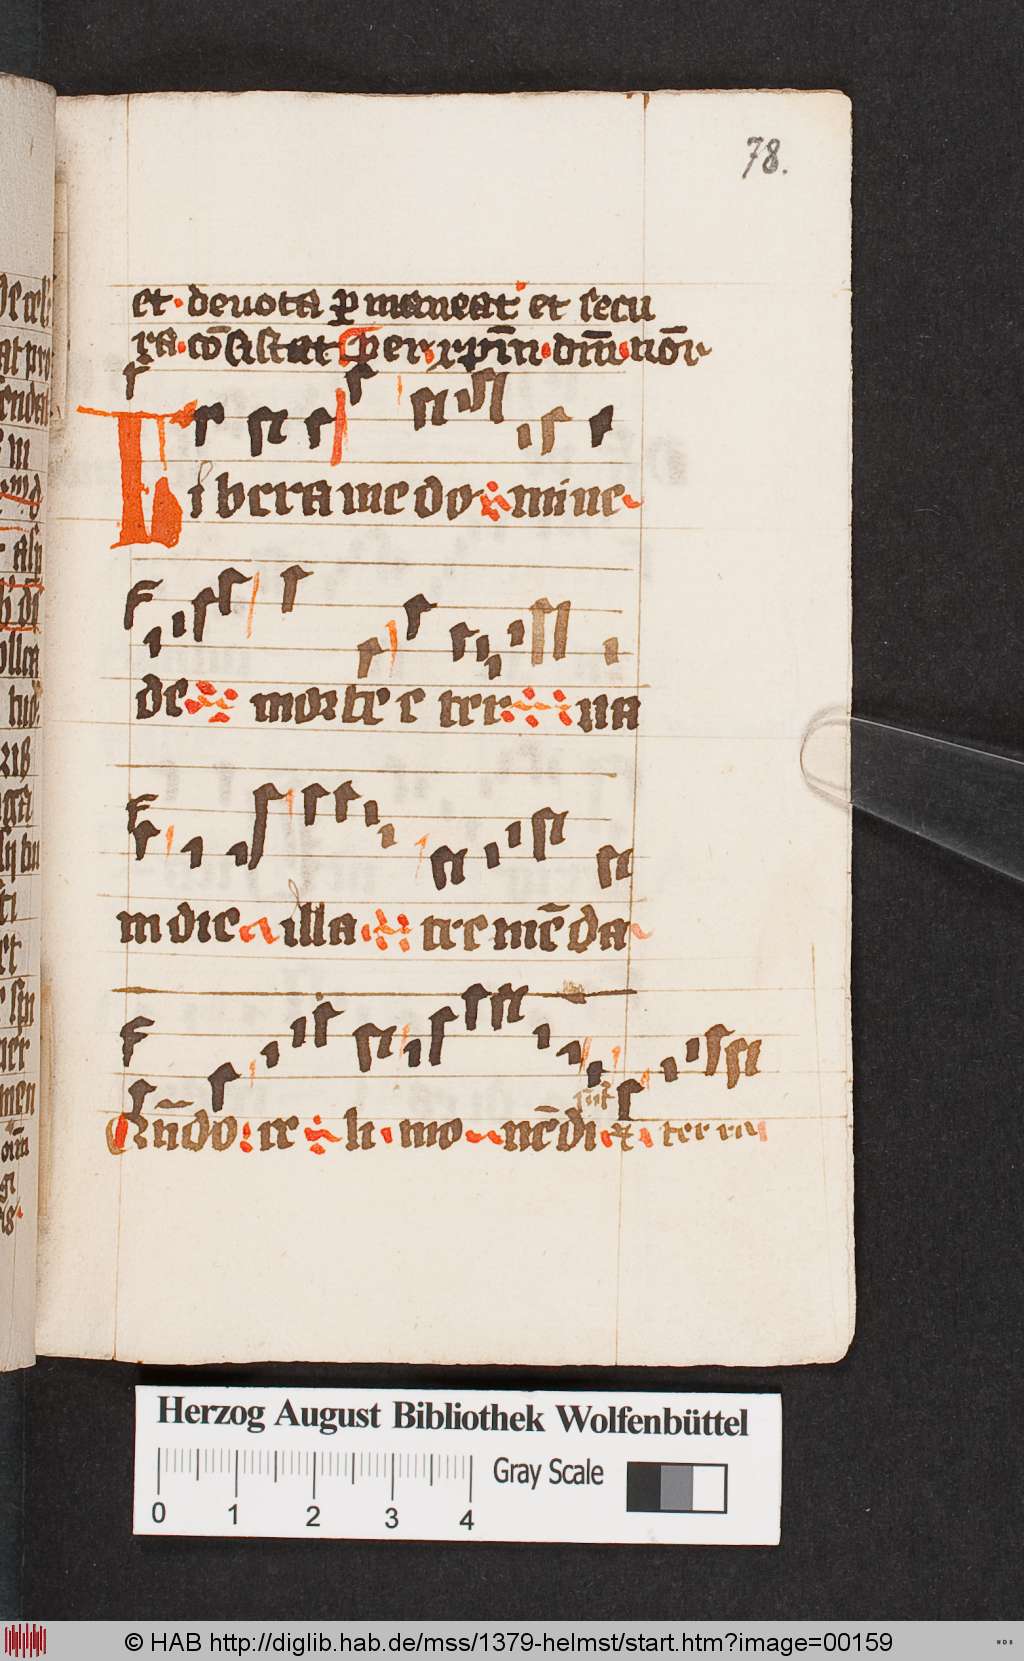 78.
et devota ꝑmaneat et secu
ra cōsistat Per xpm̄ dm̄ nor̄
Libera me domine
de morte eterna
in die illa tremēda
Qn̄do celi movēdi st̄ et terra
Herzog August Bibliothek Wolfenbüttel
0 1 2 3 4 Gray Scale
© HAB http://diglib.hab.de/mss/1379-helmst/start.htm?image=00159